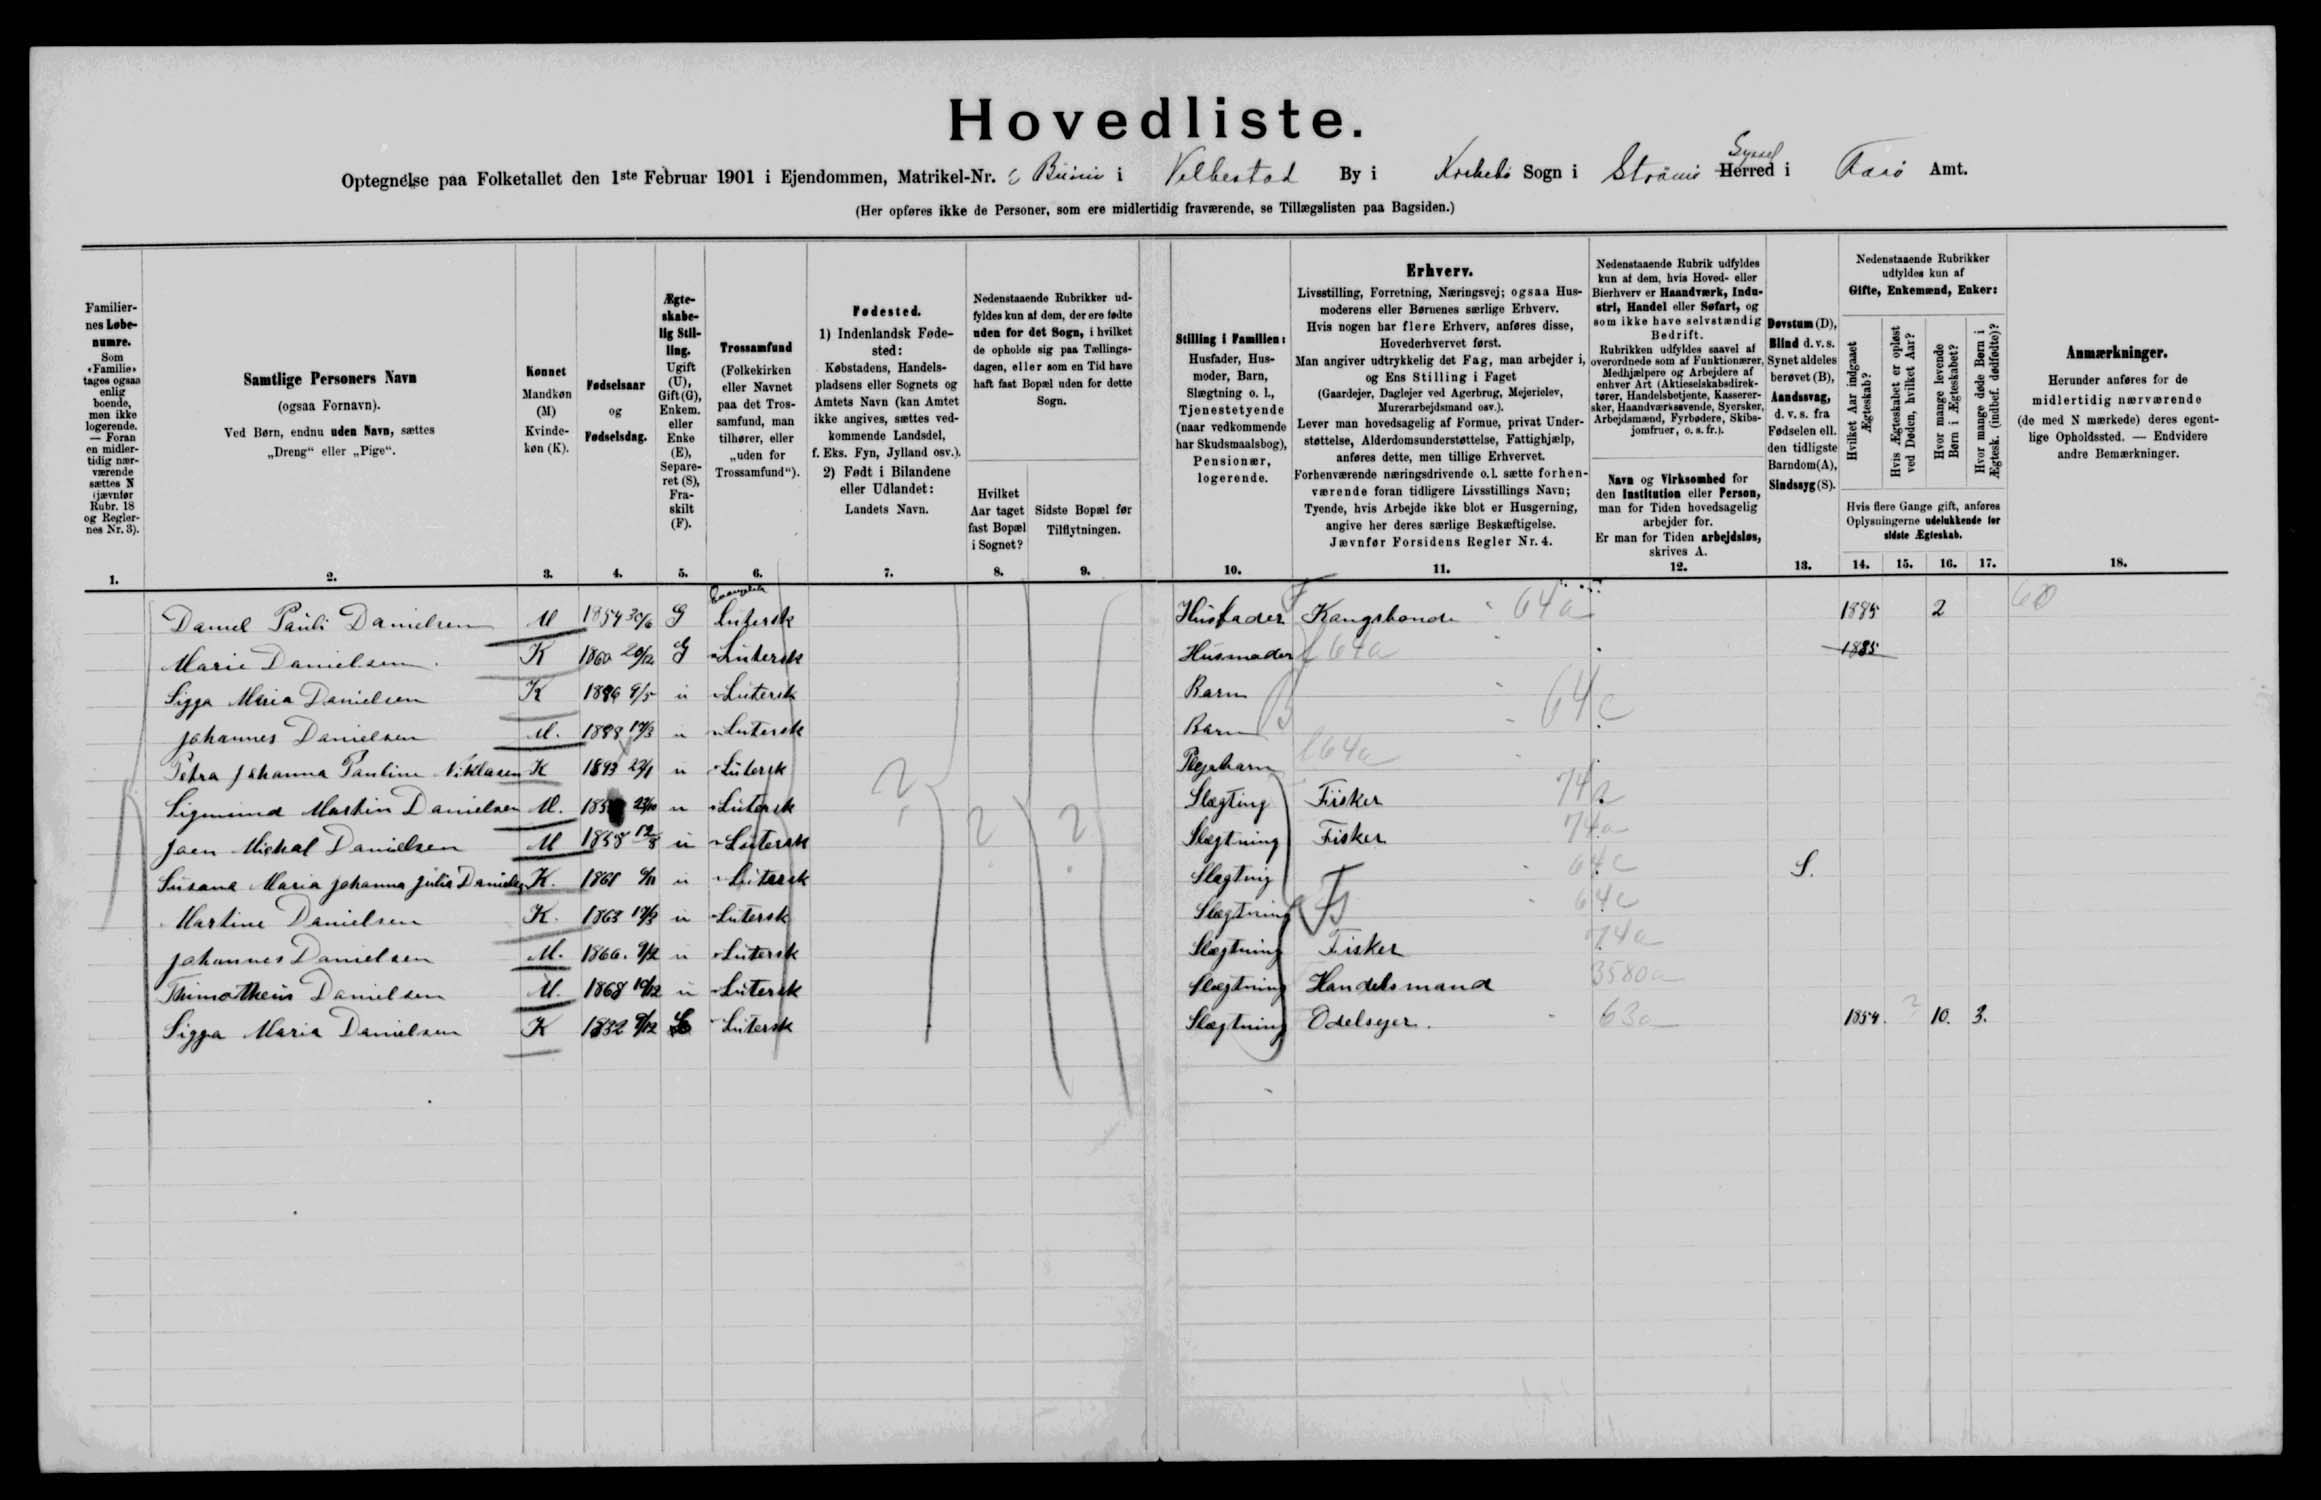 Hovedliste.
Optegnelse paa Folketallet den 1ste Februar 1901 i Ejendommen, Matrikel-Nr. i Velbestad By i Kirkebö Sogn i Strömö Syssel Herred i Færö Amt.
(Her opføres ikke de Personer, som ere midlertidig fraværende, se Tillægslisten paa Bagsiden.)
Familiernes Løbenumre. Som «Familie» tages ogsaa enlig boende, men ikke logerende. — Foran en midlertidig nærværende sættes N (jævnfør Rubr. 18 og Reglernes Nr. 3).
Samtlige Personers Navn (ogsaa Fornavn). Ved Børn, endnu uden Navn, sættes „Dreng“ eller „Pige“.
Kønnet Mandkøn (M) Kvindekøn (K).
Fødselsaar og Fødselsdag.
Ægteskabelig Stilling. Ugift (U), Gift (G), Enkem. eller Enke (E), Separeret (S), Fraskilt (F).
Trossamfund (Folkekirken eller Navnet paa det Trossamfund, man tilhører, eller „uden for Trossamfund“).
Fødested. 1) Indenlandsk Fødested: Købstadens, Handelspladsens eller Sognets og Amtets Navn (kan Amtet ikke angives, sættes vedkommende Landsdel, f. Eks. Fyn, Jylland osv.). 2) Født i Bilandene eller Udlandet: Landets Navn.
Nedenstaaende Rubrikker udfyldes kun af dem, der ere fødte uden for det Sogn, i hvilket de opholde sig paa Tællingsdagen, eller som en Tid have haft fast Bopæl uden for dette Sogn.
Hvilket Aar taget fast Bopæl i Sognet?
Sidste Bopæl før Tilflytningen.
Stilling i Familien: Husfader, Husmoder, Barn, Slægtning o. l., Tjenestetyende (naar vedkommende har Skudsmaalsbog), Pensionær, logerende.
Erhverv. Livsstilling, Forretning, Næringsvej; ogsaa Husmoderens eller Børnenes særlige Erhverv. Hvis nogen har flere Erhverv, anføres disse, Hovederhvervet først. Man angiver udtrykkelig det Fag, man arbejder i, og Ens Stilling i Faget (Gaardejer, Daglejer ved Agerbrug, Mejerielev, Murerarbejdsmand osv.). Lever man hovedsagelig af Formue, privat Understøttelse, Alderdomsunderstøttelse, Fattighjælp, anføres dette, men tillige Erhvervet. Forhenværende næringsdrivende o. l. sætte forhenværende foran tidligere Livsstillings Navn; Tyende, hvis Arbejde ikke blot er Husgerning, angive her deres særlige Beskæftigelse. Jævnfør Forsidens Regler Nr. 4.
Nedenstaaende Rubrik udfyldes kun af dem, hvis Hoved- eller Bierhverv er Haandværk, Industri, Handel eller Søfart, og som ikke have selvstændig Bedrift. Rubrikken udfyldes saavel af overordnede som af Funktionærer, Medhjælpere og Arbejdere af enhver Art (Aktieselskabsdirektører, Handelsbetjente, Kasserersker, Haandværkssvende, Syersker, Arbejdsmænd, Fyrbødere, Skibsjomfruer, o. s. fr.).
Navn og Virksomhed for den Institution eller Person, man for Tiden hovedsagelig arbejder for. Er man for Tiden arbejdsløs, skrives A.
Døvstum (D), Blind d. v. s. Synet aldeles berøvet (B), Aandssvag, d. v. s. fra Fødselen ell. den tidligste Barndom (A), Sindssyg (S).
Nedenstaaende Rubrikker udfyldes kun af Gifte, Enkemænd, Enker:
Hvilket Aar indgaaet Ægteskab?
Hvis Ægteskabet er opløst ved Døden, hvilket Aar?
Hvor mange levende Børn i Ægteskabet?
Hvor mange døde Børn i Ægtesk. (indbef. dødfødte)?
Hvis flere Gange gift, anføres Oplysningerne udelukkende for sidste Ægteskab.
Anmærkninger. Herunder anføres for de midlertidig nærværende (de med N mærkede) deres egentlige Opholdssted. — Endvidere andre Bemærkninger.
1. 2. 3. 4. 5. 6. 7. 8. 9. 10. 11. 12. 13. 14. 15. 16. 17. 18.
Daniel Pauli Danielsen M 1854 30/6 G Evangelisk Lutersk Husfader Kongsbonde 64a 1885 2 60
Marie Danielsen K 1860 20/12 G Lutersk Husmoder 64a 1885
Sigga Maria Danielsen K 1896 9/5 u Lutersk Barn
Johannes Danielsen M. 1898 17/3 u Lutersk Barn 64c
Petra Johanna Pauline Niklasen K 1893 22/1 u Lutersk Plejebarn 64a
Sigmund Martin Danielsen M. 23/10 u Lutersk Slægting Fisker 74a
Joen Michal Danielsen M 1858 12/8 u Lutersk Slægtning Fisker 74a
Susana Maria Johanna Julia Danielsen K. 1861 u Lutersk Slægting 64c S.
Martine Danielsen K. 1863 17/3 u Lutersk Slægtning 64c
Johannes Danielsen M. 1866. 9/12 u Lutersk Slægtning Fisker 74a
Thimotheus Danielsen M. 1868 10/12 u Lutersk Slægtning Handelsmand 3580a
Sigga Maria Danielsen K 1832 9/12 Lutersk Slægtning Odelsejer. 63a 1854. ? 10. 3.